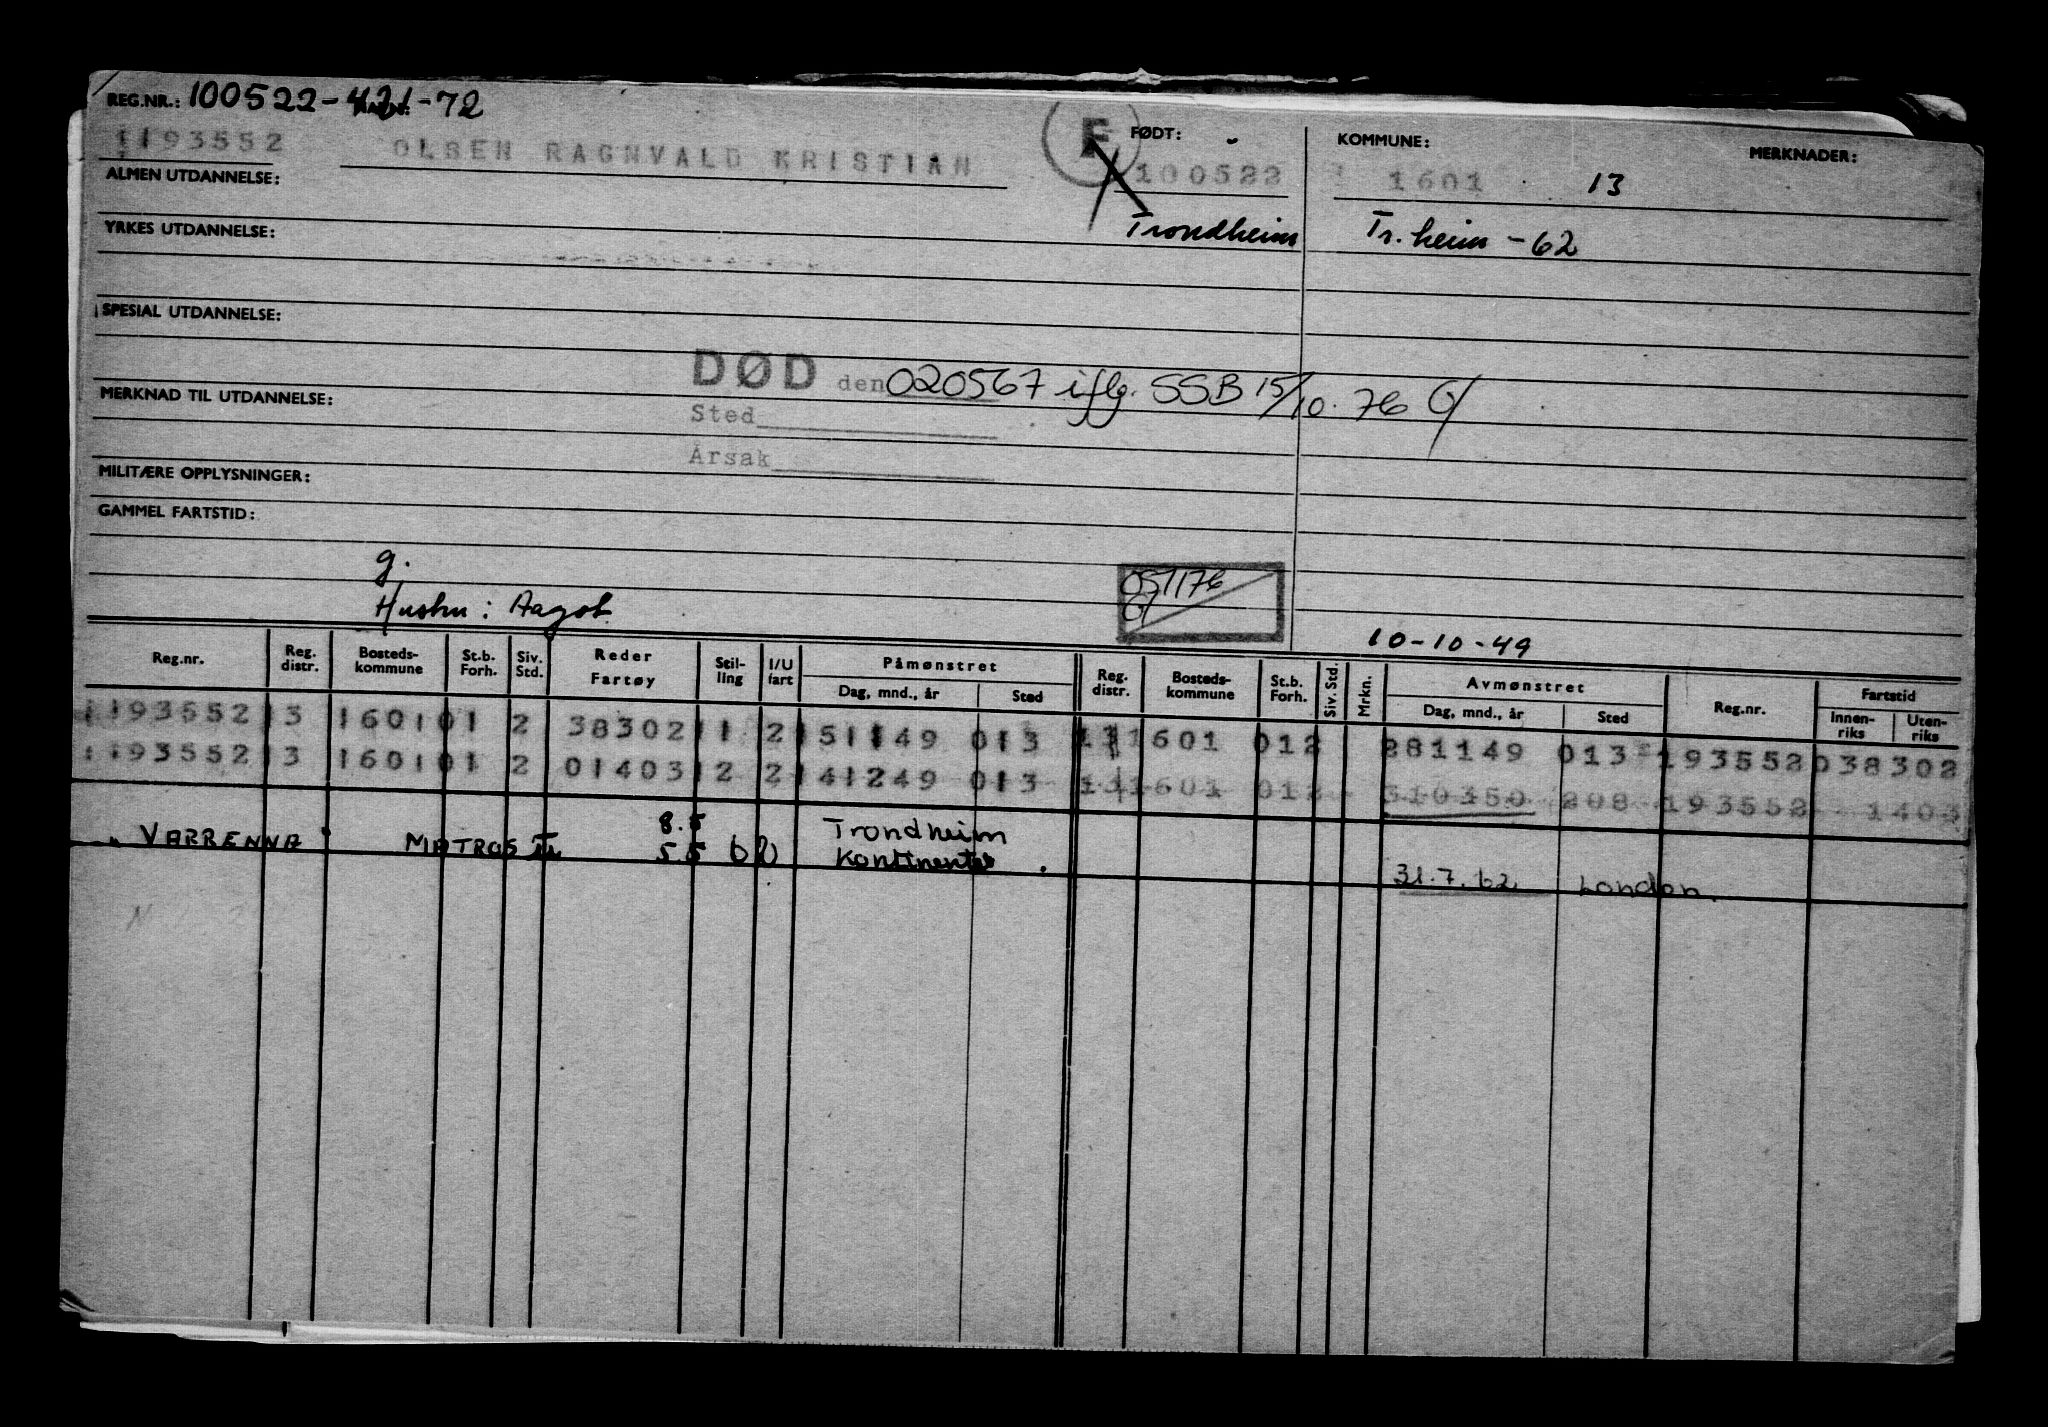 REG.NR.: 100522-421-72
FØDT: KOMMUNE: MERKNADER:
1193552 OLSEN RAGNVALD KRISTIAN F 100522 1601 13
ALMEN UTDANNELSE:
Trondheim Tr.heim -62
YRKES UTDANNELSE:
SPESIAL UTDANNELSE:
DØD den 020567 iflg. SSB 15/10.76
MERKNAD TIL UTDANNELSE:
Sted
Årsak
MILITÆRE OPPLYSNINGER:
GAMMEL FARTSTID:
g.
051176
Hustru: Aagot
10-10-49
Reg.nr. Reg. distr. Bosteds-kommune St.b. Forh. Siv. Std. Reder Fartøy Stil-ling I/U fart Påmønstret Dag, mnd., år Sted Reg. distr. Bosteds-kommune St.b. Forh. Siv. Std. Mrkn. Avmønstret Dag, mnd., år Sted Reg.nr. Fartstid Innen-riks Uten-riks
1193552 13 1601 01 2 38302 11 2 151149 013 13 1601 012 281149 013 193552 038302
1193552 13 1601 01 2 01403 12 2 141249 013 13 1601 012 310350 208 193552 1403
8.5 Trondheim
"VARRENNA" MATROS Tr 5.5 62 Kontinentet 31.7.62 London.